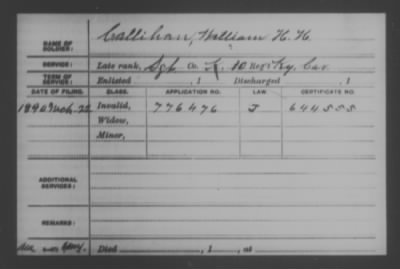 NAME OF SOLDIER: Callihan, William H. H.
SERVICE: Late rank, Sgt Co. K, 10 Reg't Ky. Cav.
TERM OF SERVICE: Enlisted , 1 Discharged , 1
DATE OF FILING. CLASS. APPLICATION NO. LAW. CERTIFICATE NO.
1890 Mch. 22 Invalid, 776476 J 644555
Widow,
Minor,
ADDITIONAL SERVICES:
REMARKS:
Died , 1 , at